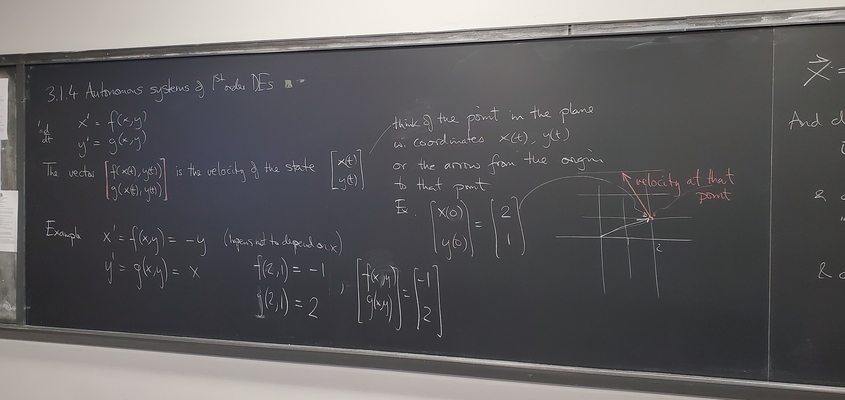 3.1.4 Autonomous systems of 1st order DEs
' = d/dt
x' = f(x,y)
y' = g(x,y)
The vector [f(x(t),y(t)) g(x(t),y(t))] is the velocity of the state [x(t) y(t)]
think of the point in the plane
w. coordinates x(t), y(t)
or the arrow from the origin
to that point
Ex. [x(0) y(0)] = [2 1]
velocity at that
point
2
Example x' = f(x,y) = -y (happens not to depend on x)
y' = g(x,y) = x
f(2,1) = -1
g(2,1) = 2
, [f(x,y) g(x,y)] = [-1 2]
X =
And
&
&